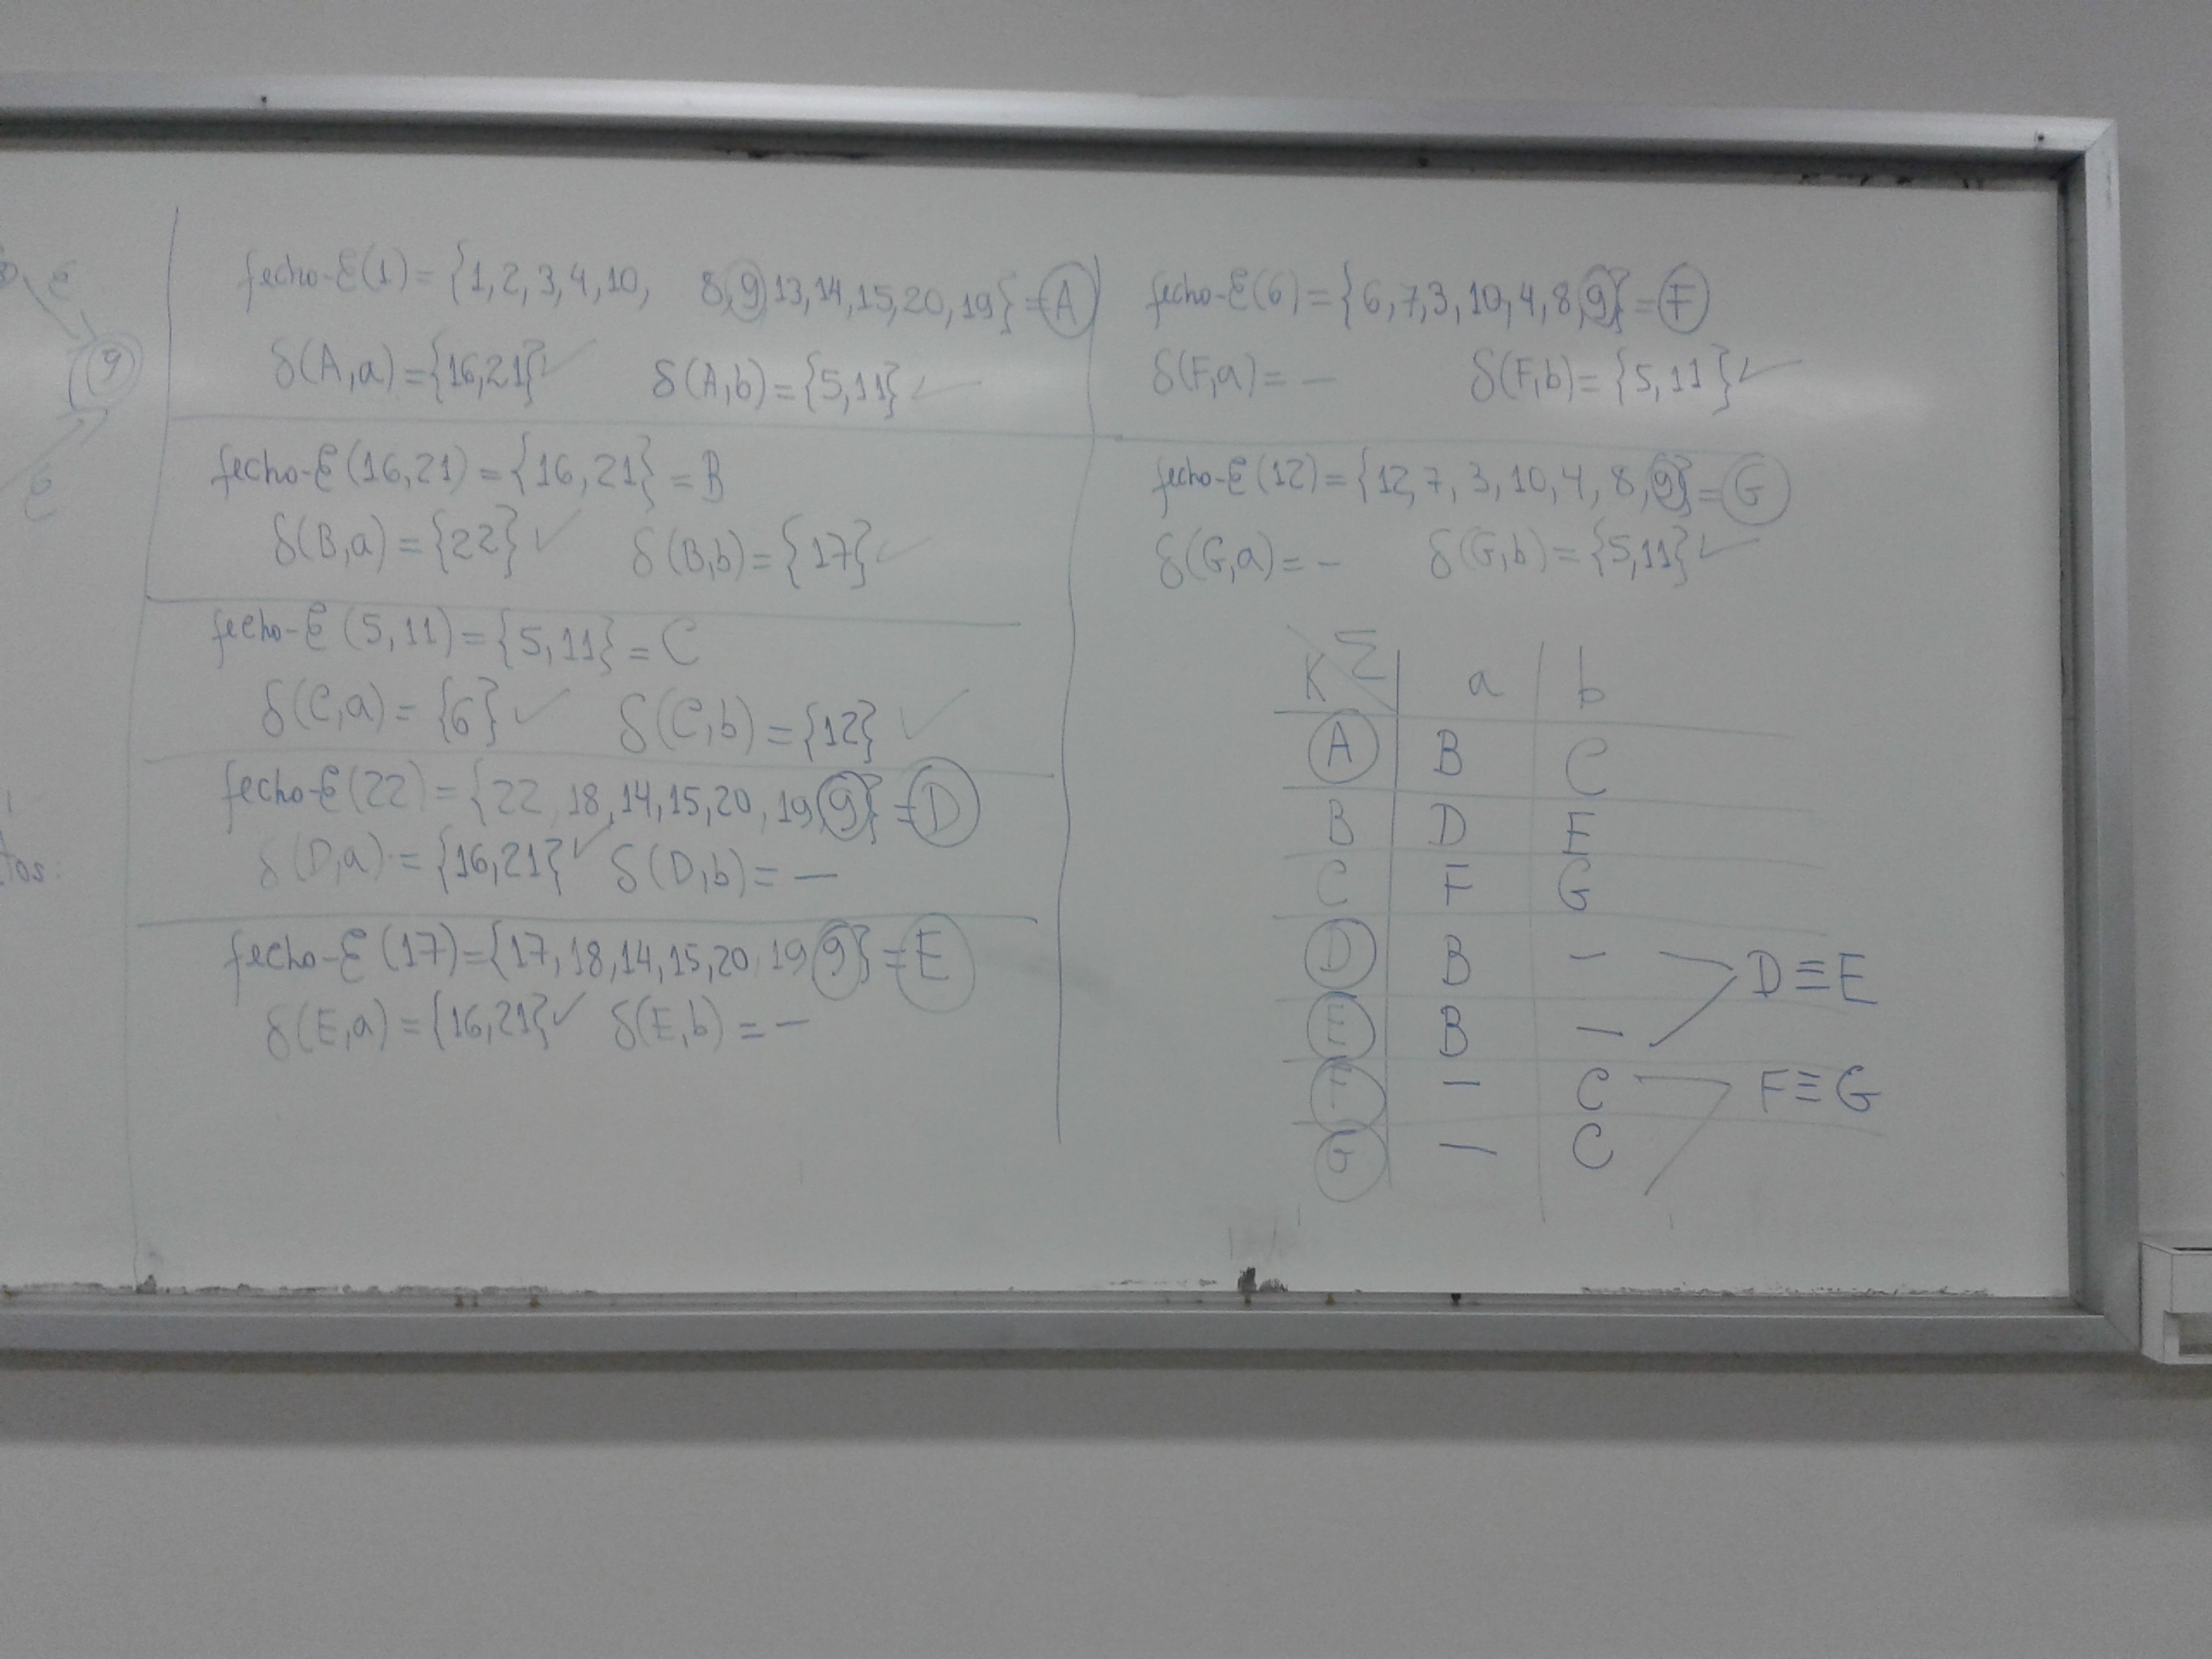 ε
9
ε
tos.
fecho-ε(1) = {1,2,3,4,10, 8,9,13,14,15,20,19} = A
δ(A,a) = {16,21} ✓ δ(A,b) = {5,11} ✓
fecho-ε(16,21) = {16,21} = B
δ(B,a) = {22} ✓ δ(B,b) = {17} ✓
fecho-ε(5,11) = {5,11} = C
δ(C,a) = {6} ✓ δ(C,b) = {12} ✓
fecho-ε(22) = {22,18,14,15,20,19,9} = D
δ(D,a) = {16,21} ✓ δ(D,b) = —
fecho-ε(17) = {17,18,14,15,20,19,9} = E
δ(E,a) = {16,21} ✓ δ(E,b) = —
fecho-ε(6) = {6,7,3,10,4,8,9} = F
δ(F,a) = — δ(F,b) = {5,11} ✓
fecho-ε(12) = {12,7,3,10,4,8,9} = G
δ(G,a) = — δ(G,b) = {5,11} ✓
K Σ a b
A B C
B D E
C F G
D B — D ≡ E
E B —
F — C F ≡ G
G — C